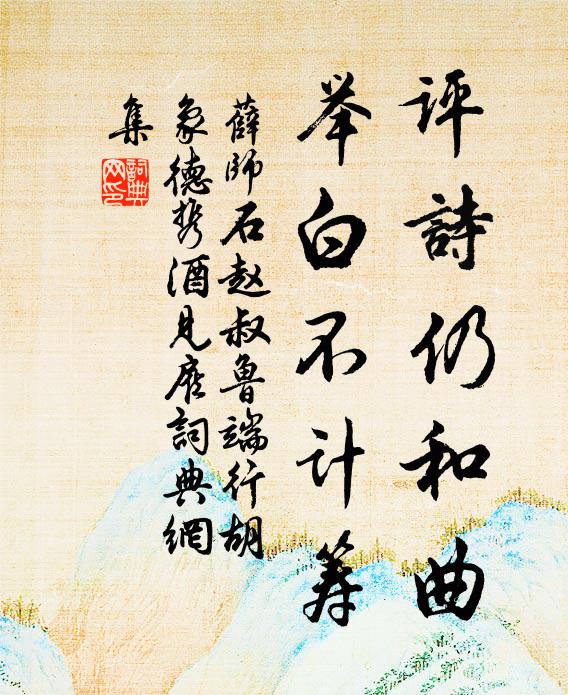 评詩仍和曲
举白不计筹
薛師石赵叔鲁端行胡
象德携酒見雇詞典網
集
詞典
网印